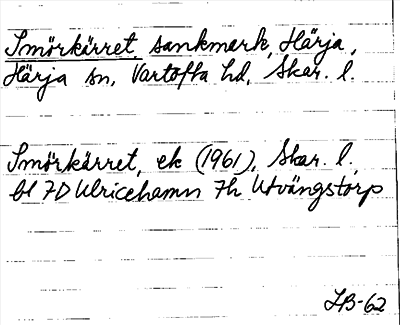 Smörkärret, sankmark, Härja,
Härja sn, Vartofta hd, Skar. l.
Smörkärret, ek (1961), Skar. l.,
bl 7D Ulricehamn 7h Utvängstorp
LB-62